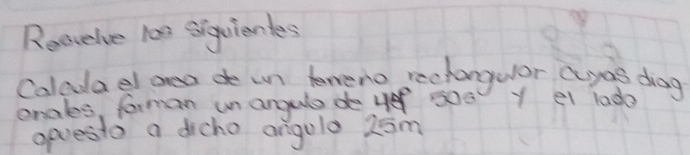 Resuelve los siguientes
Calcula el area de un terreno rectangular cuyas diag
onales forman un angulo de 50° y el lado
opuesto a dicho angulo 25m